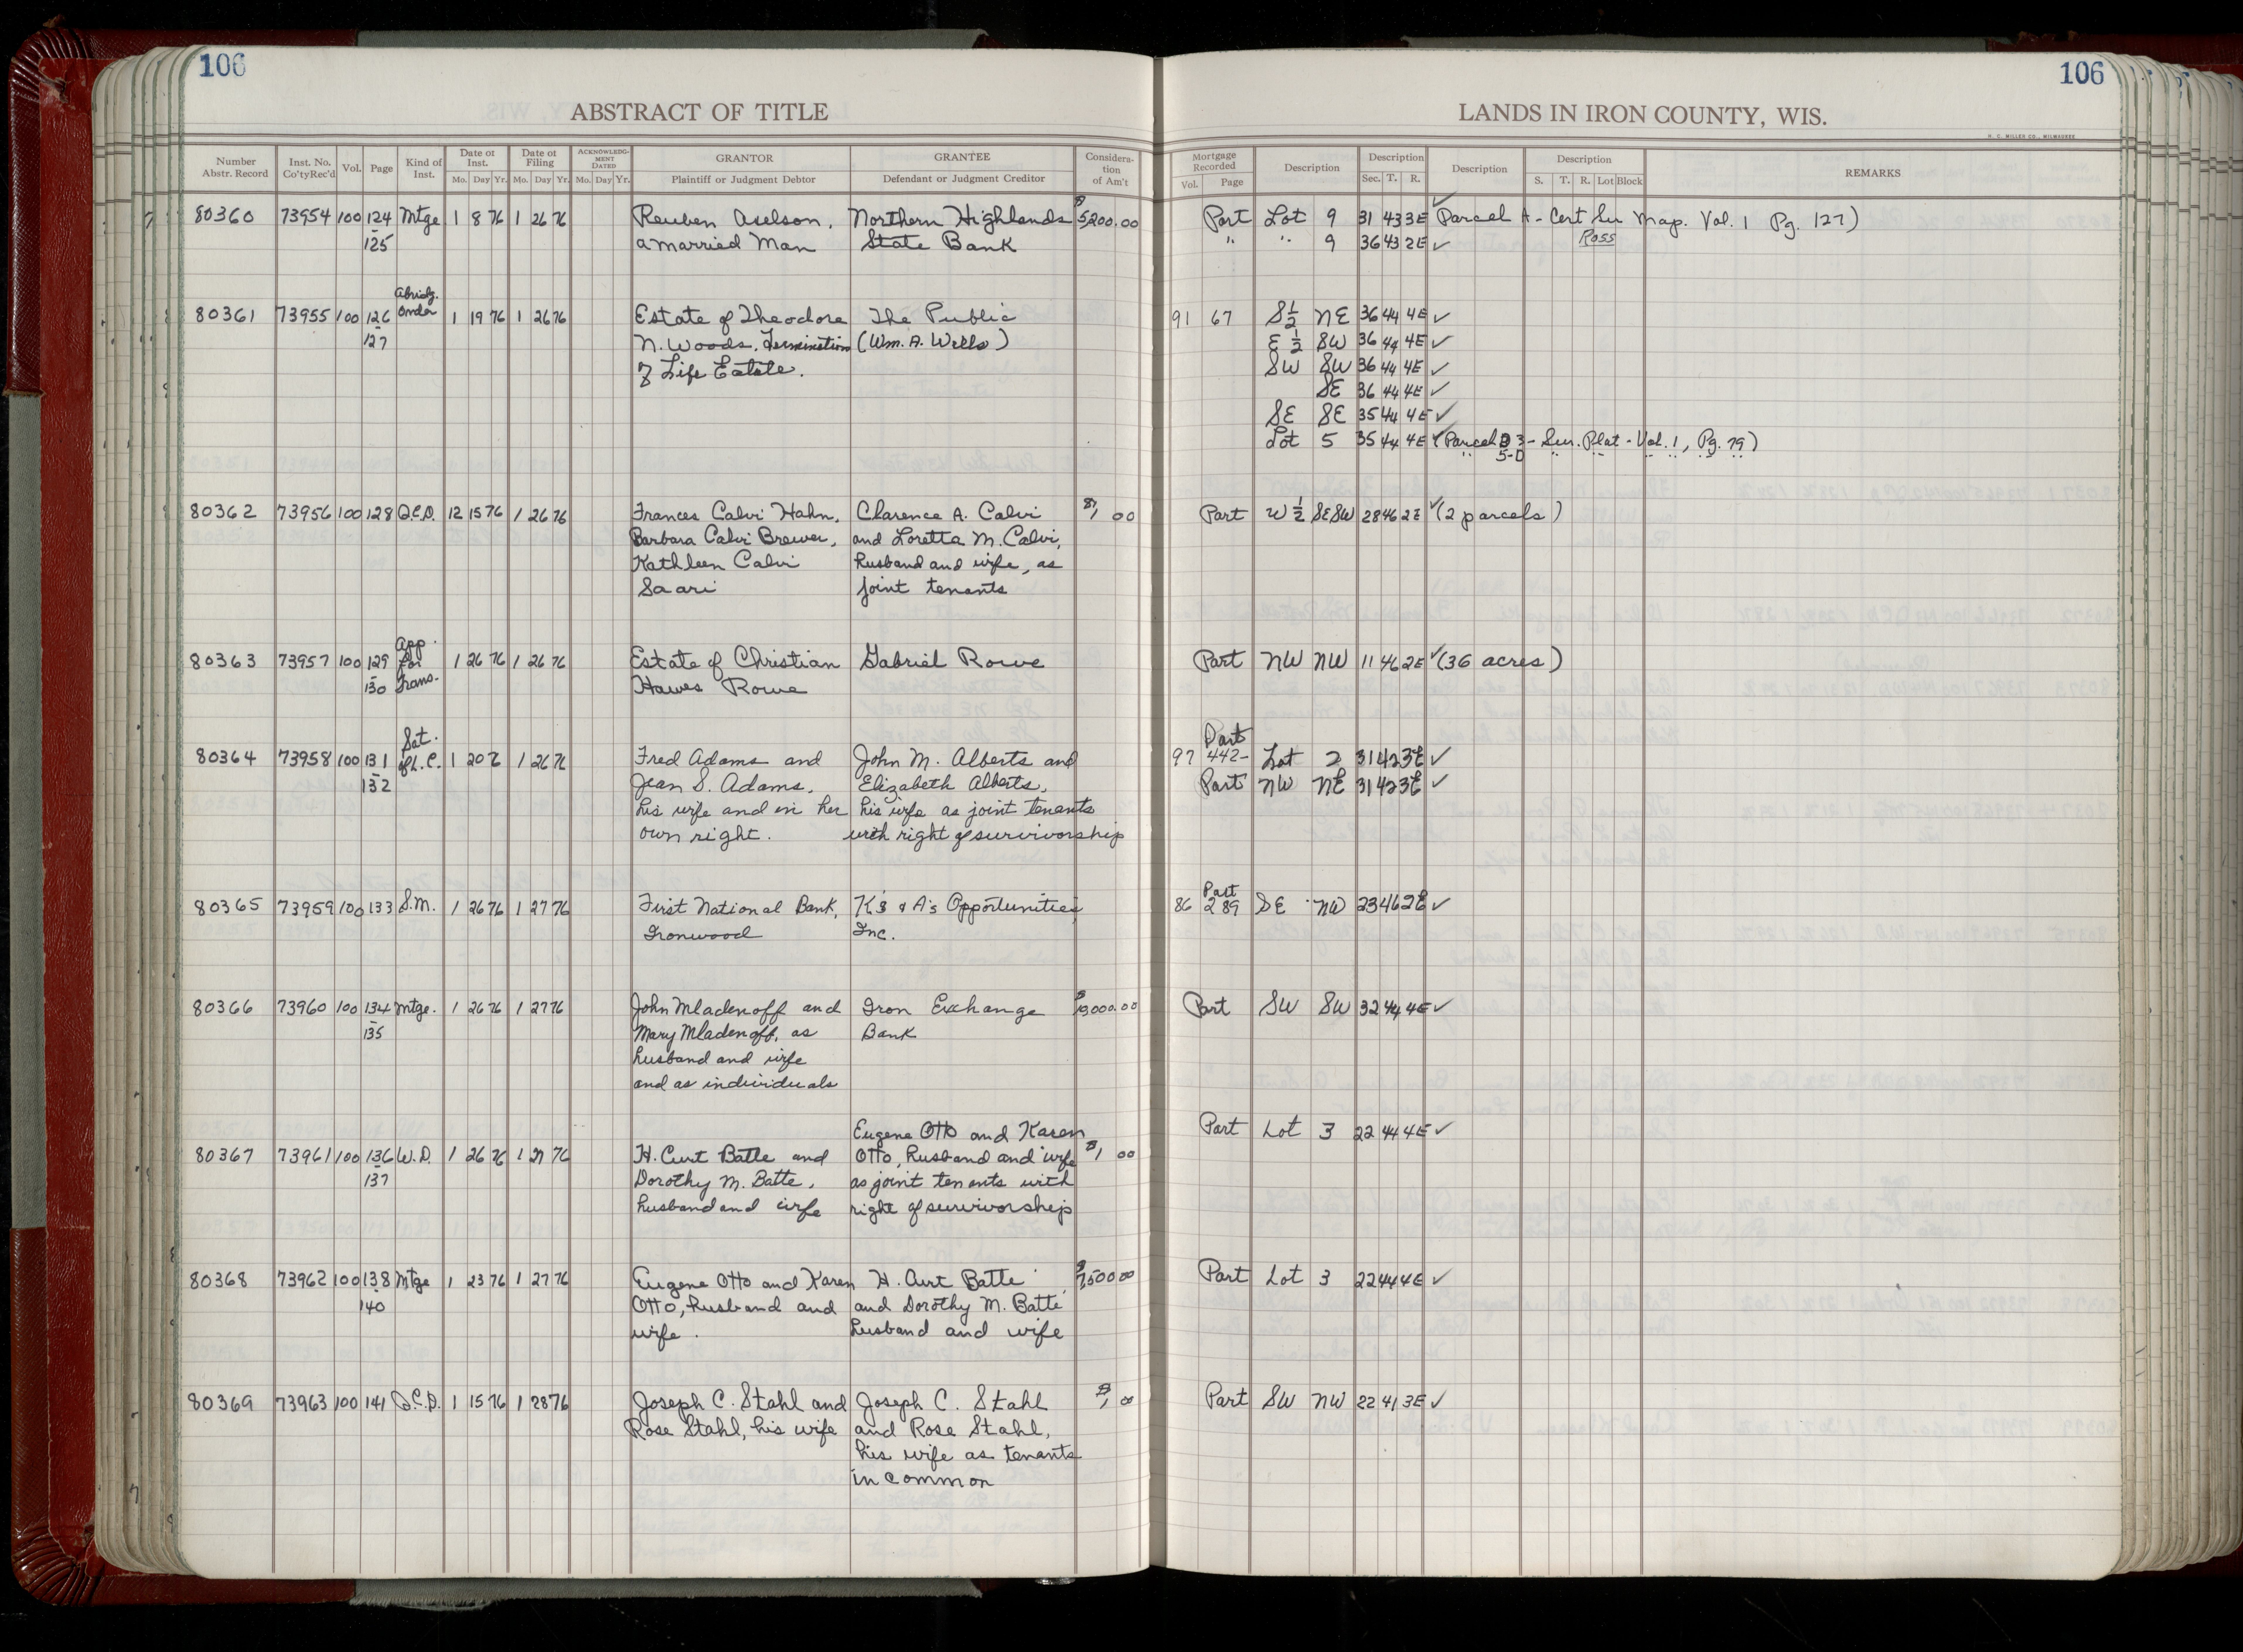 106
106
ABSTRACT OF TITLE
LANDS IN IRON COUNTY, WIS.
H. C. MILLER CO., MILWAUKEE
Number Abstr. Record Inst. No. Co'tyRec'd Vol. Page Kind of Inst. Date of Inst. Mo. Day Yr. Date of Filing Mo. Day Yr. ACKNOWLEDGMENT DATED Mo. Day Yr. GRANTOR Plaintiff or Judgment Debtor GRANTEE Defendant or Judgment Creditor Consideration of Am't
Mortgage Recorded Vol. Page Description Description Sec. T. R. Description Description S. T. R. Lot Block REMARKS
80360 73954 100 124 Mtge 1 8 76 1 26 76 Reuben Aselson, Northern Highlands $5,200.00 Part Lot 9 31 43 3E ✓ Parcel A - Cert Su Map. Vol. 1 Pg. 127)
125 a married Man State Bank " " 9 36 43 2E ✓ Ross
Abridg.
80361 73955 100 126 Order 1 19 76 1 26 76 Estate of Theodore The Public 91 67 S½ NE 36 44 4E ✓
127 N. Woods, Termination (Wm. A. Wells) E ½ SW 36 44 4E ✓
of Life Estate. SW SW 36 44 4E ✓
SE 36 44 4E ✓
SE SE 35 44 4E ✓
Lot 5 35 44 4E ✓ (Parcel 3 - Sur. Plat - Vol. 1, Pg. 79)
" 5-D " " " " " "
80362 73956 100 128 Q.C.D. 12 15 76 1 26 76 Frances Calvi Hahn, Clarence A. Calvi $1 00 Part W ½ SESW 28 46 2E ✓ (2 parcels)
Barbara Calvi Brewer, and Loretta M. Calvi,
Kathleen Calvi husband and wife, as
Saari joint tenants
App.
80363 73957 100 129 for 1 26 76 1 26 76 Estate of Christian Gabriel Rowe Part NW NW 11 46 2E ✓ (36 acres)
130 Trans. Hawes Rowe
Sat. Part
80364 73958 100 131 of L.C. 1 20 76 1 26 76 Fred Adams and John M. Alberts and 97 442- Lot 2 31 42 3E ✓
132 Jean S. Adams, Elizabeth Alberts, Part NW NE 31 42 3E ✓
his wife and in her his wife as joint tenants
own right. with right of survivorship
Part
80365 73959 100 133 S.M. 1 26 76 1 27 76 First National Bank, K's & A's Opportunities, 86 289 SE NW 23 46 2E ✓
Ironwood Inc.
80366 73960 100 134 Mtge. 1 26 76 1 27 76 John Mladenoff and Iron Exchange Part SW SW 32 44 4E ✓
135 Mary Mladenoff, as Bank
husband and wife
and as individuals
Eugene Otto and Karen Part Lot 3 22 44 4E ✓
80367 73961 100 136 W.D. 1 26 76 1 27 76 H. Curt Batte and Otto, husband and wife $1 00
137 Dorothy M. Batte, as joint tenants with
husband and wife right of survivorship
80368 73962 100 138 Mtge 1 23 76 1 27 76 Eugene Otto and Karen H. Curt Batte $7,500 00 Part Lot 3 22 44 4E ✓
140 Otto, husband and and Dorothy M. Batte
wife. husband and wife
80369 73963 100 141 Q.C.D. 1 15 76 1 28 76 Joseph C. Stahl and Joseph C. Stahl $1 00 Part SW NW 22 41 3E ✓
Rose Stahl, his wife and Rose Stahl,
his wife as tenants
in common